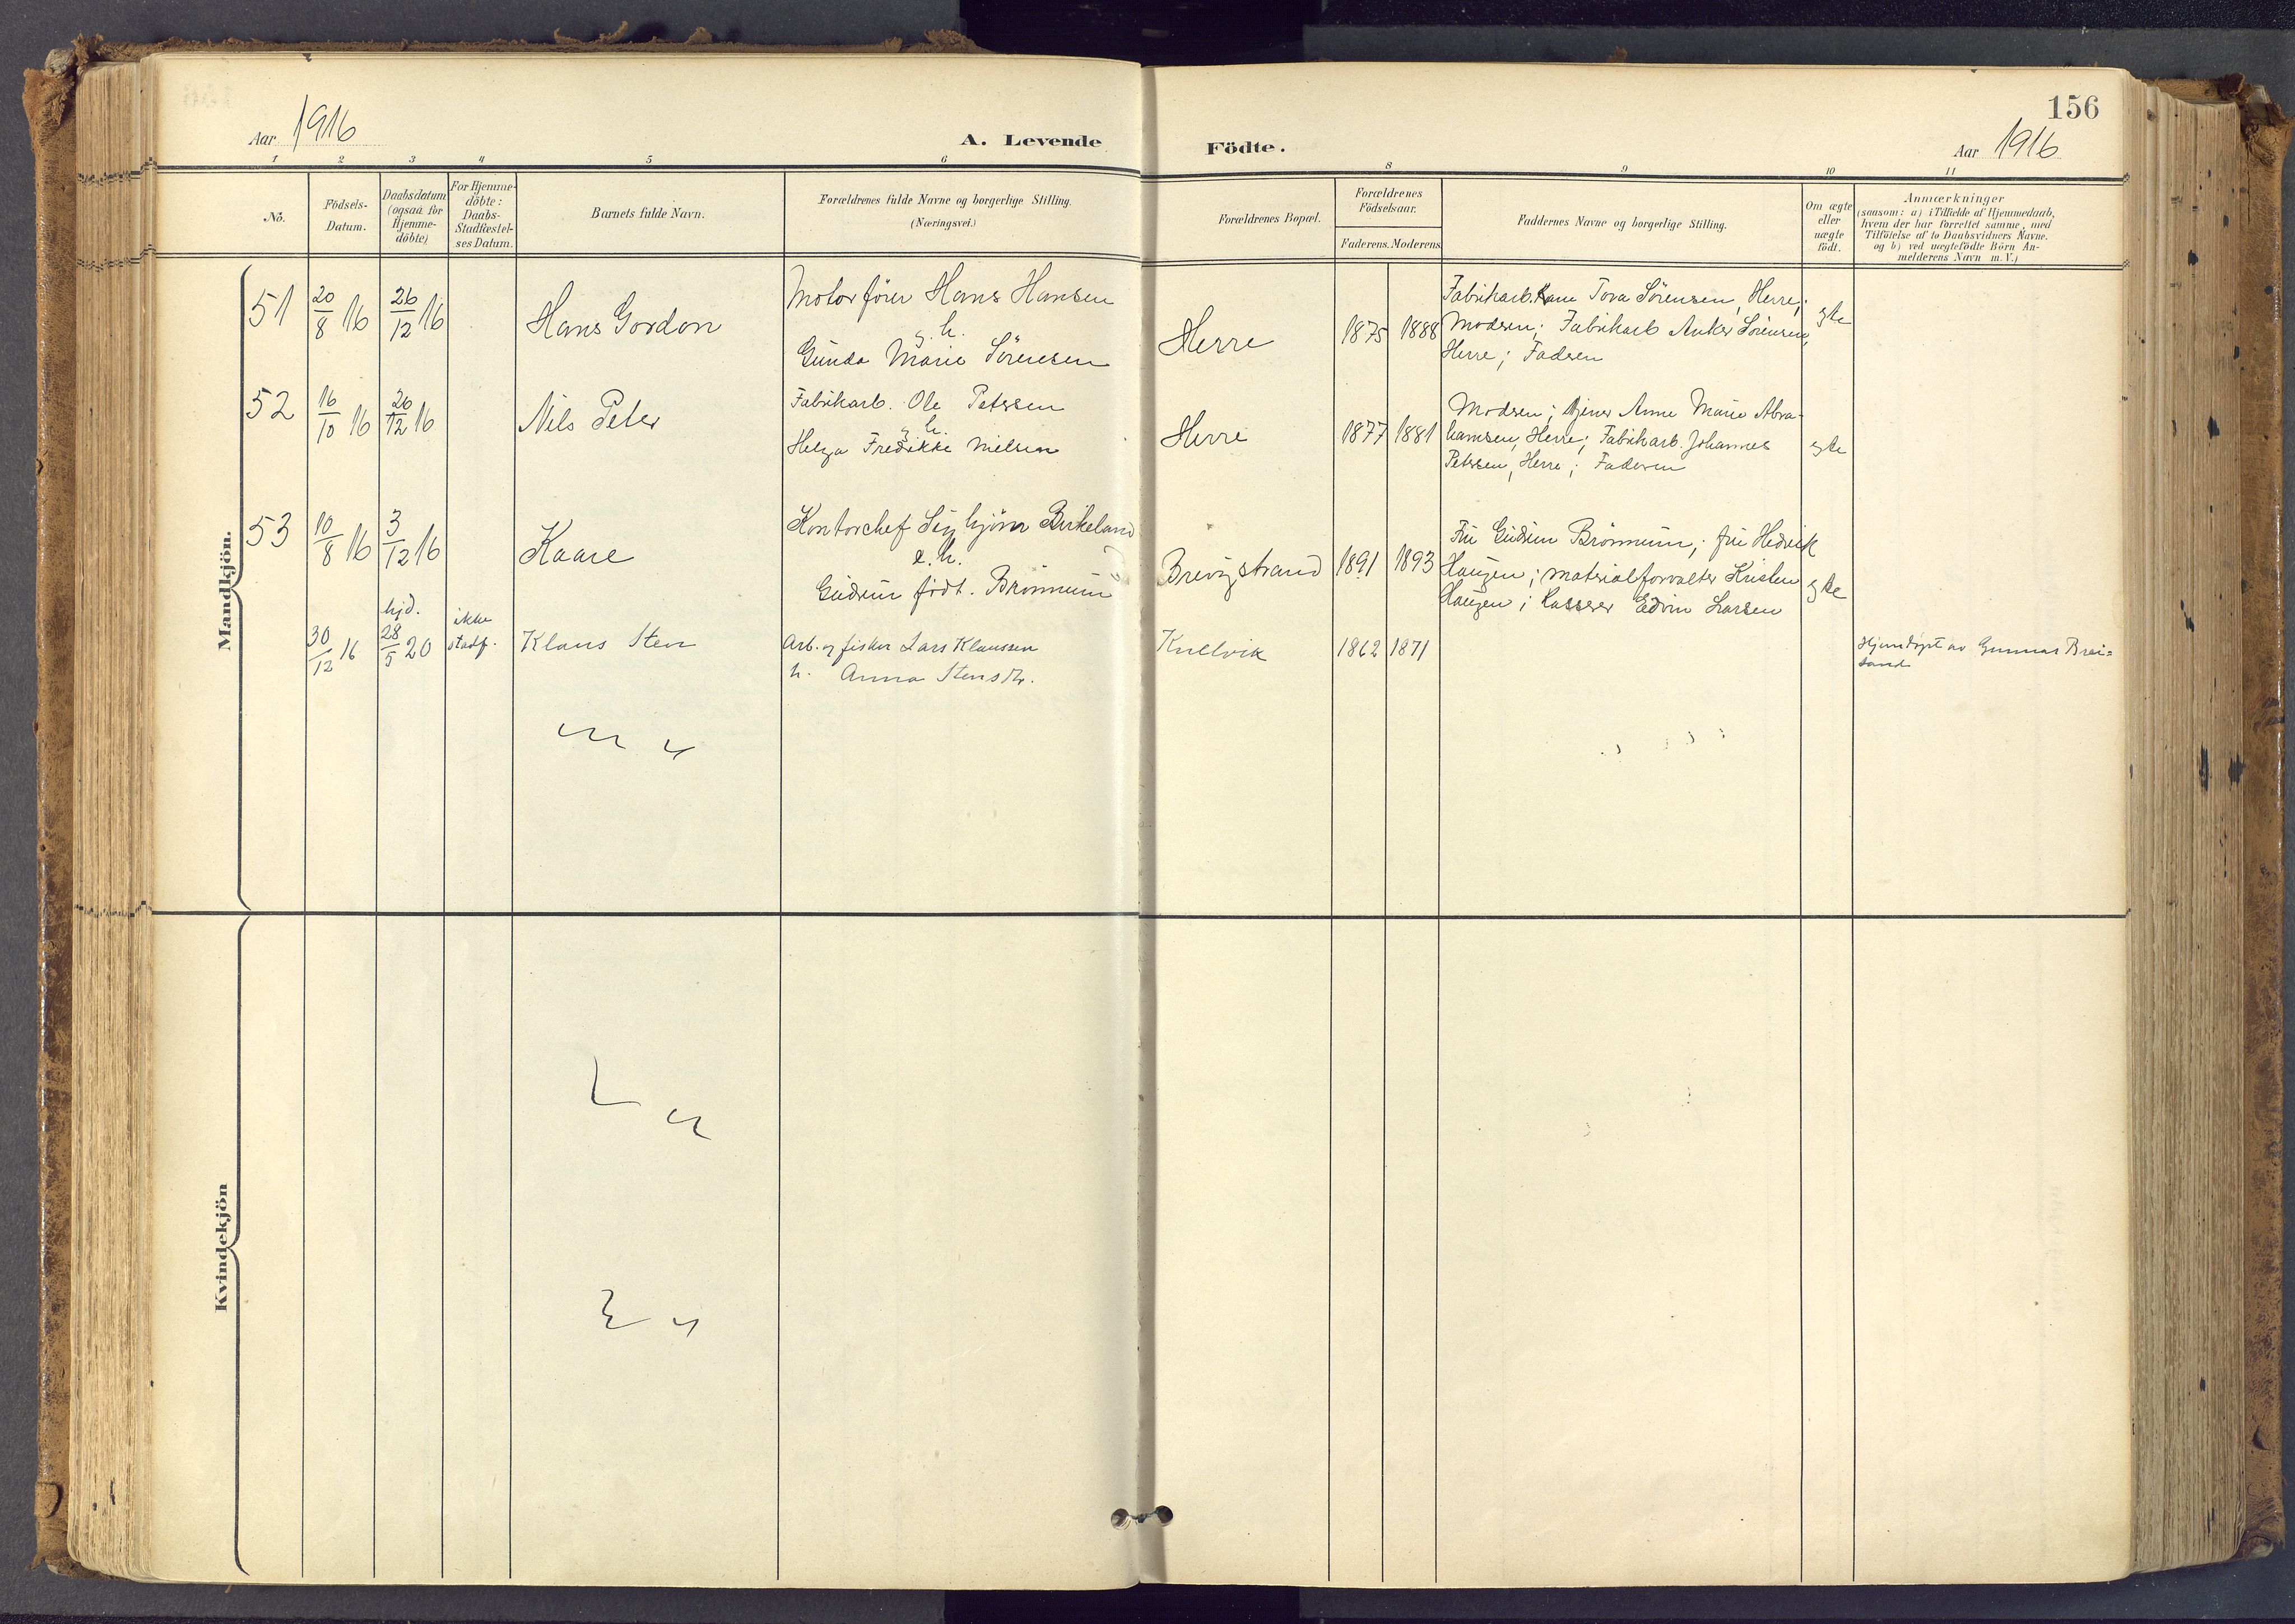 156
Aar 1916
A. Levende Födte.
Aar 1916
1 2 3 4 5 6 8 9 10 11
No.
Födsels-
Datum.
Daabsdatum
(ogsaa for
Hjemme-
döbte)
For Hjemme-
döbte:
Daabs-
Stadfæstel-
ses Datum.
Barnets fulde Navn.
Forældrenes fulde Navne og borgerlige Stilling.
(Næringsvei.)
Forældrenes Bopæl.
Forældrenes
Födselsaar.
Faderens. Moderens.
Faddernes Navne og borgerlige Stilling.
Om ægte
eller
uægte
födt.
Anmærkninger
(saasom: a) i Tilfælde af Hjemmedaab,
hvem der har forrettet samme, med
Tilföielse af to Daabsvidners Navne.
og b) ved uægtefödte Börn An-
melderens Navn m.V.)
Mandkjön.
51
20/8 16
26/12 16
Hans Gordon
Motorförer Hans Hansen
g. h.
Gunda Marie Sörensen
Herre
1875 1888
Fabrikarb. Tova Sörensen, Herre;
Modren; Fabrikarb Anker Sörensen,
Herre; Fadren
egte
52
16/10 16
26/12 16
Nils Peter
Fabrikarb. Ole Petersen
g. h.
Helga Fredrikke Nielsen
Herre
1877 1881
Modren; tjener Anne Marie Abra-
hamsen, Herre; Fabrikarb. Johannes
Petersen, Herre; Faderen
egte
53
10/8 16
3/12 16
Kaare
Kontorchef Sigbjörn Birkeland
e. h.
Gudrun födt. Brönnum
Brevigstrand
1891 1893
Fru Gudrun Brönnum; fru Hedvik
Haugen; materialforvalter Kristen
Haugen; kasserer Edvin Larsen
egte
30/12 16
hjd.
28/5 20
ikke
stadf.
Klaus Sten
Arb. og fisker Lars Klaussen
h. Anna Stensdtr.
Knellvik
1862 1871
Hjemdöpt av Gunnar Brei-
sand
Kvindekjön